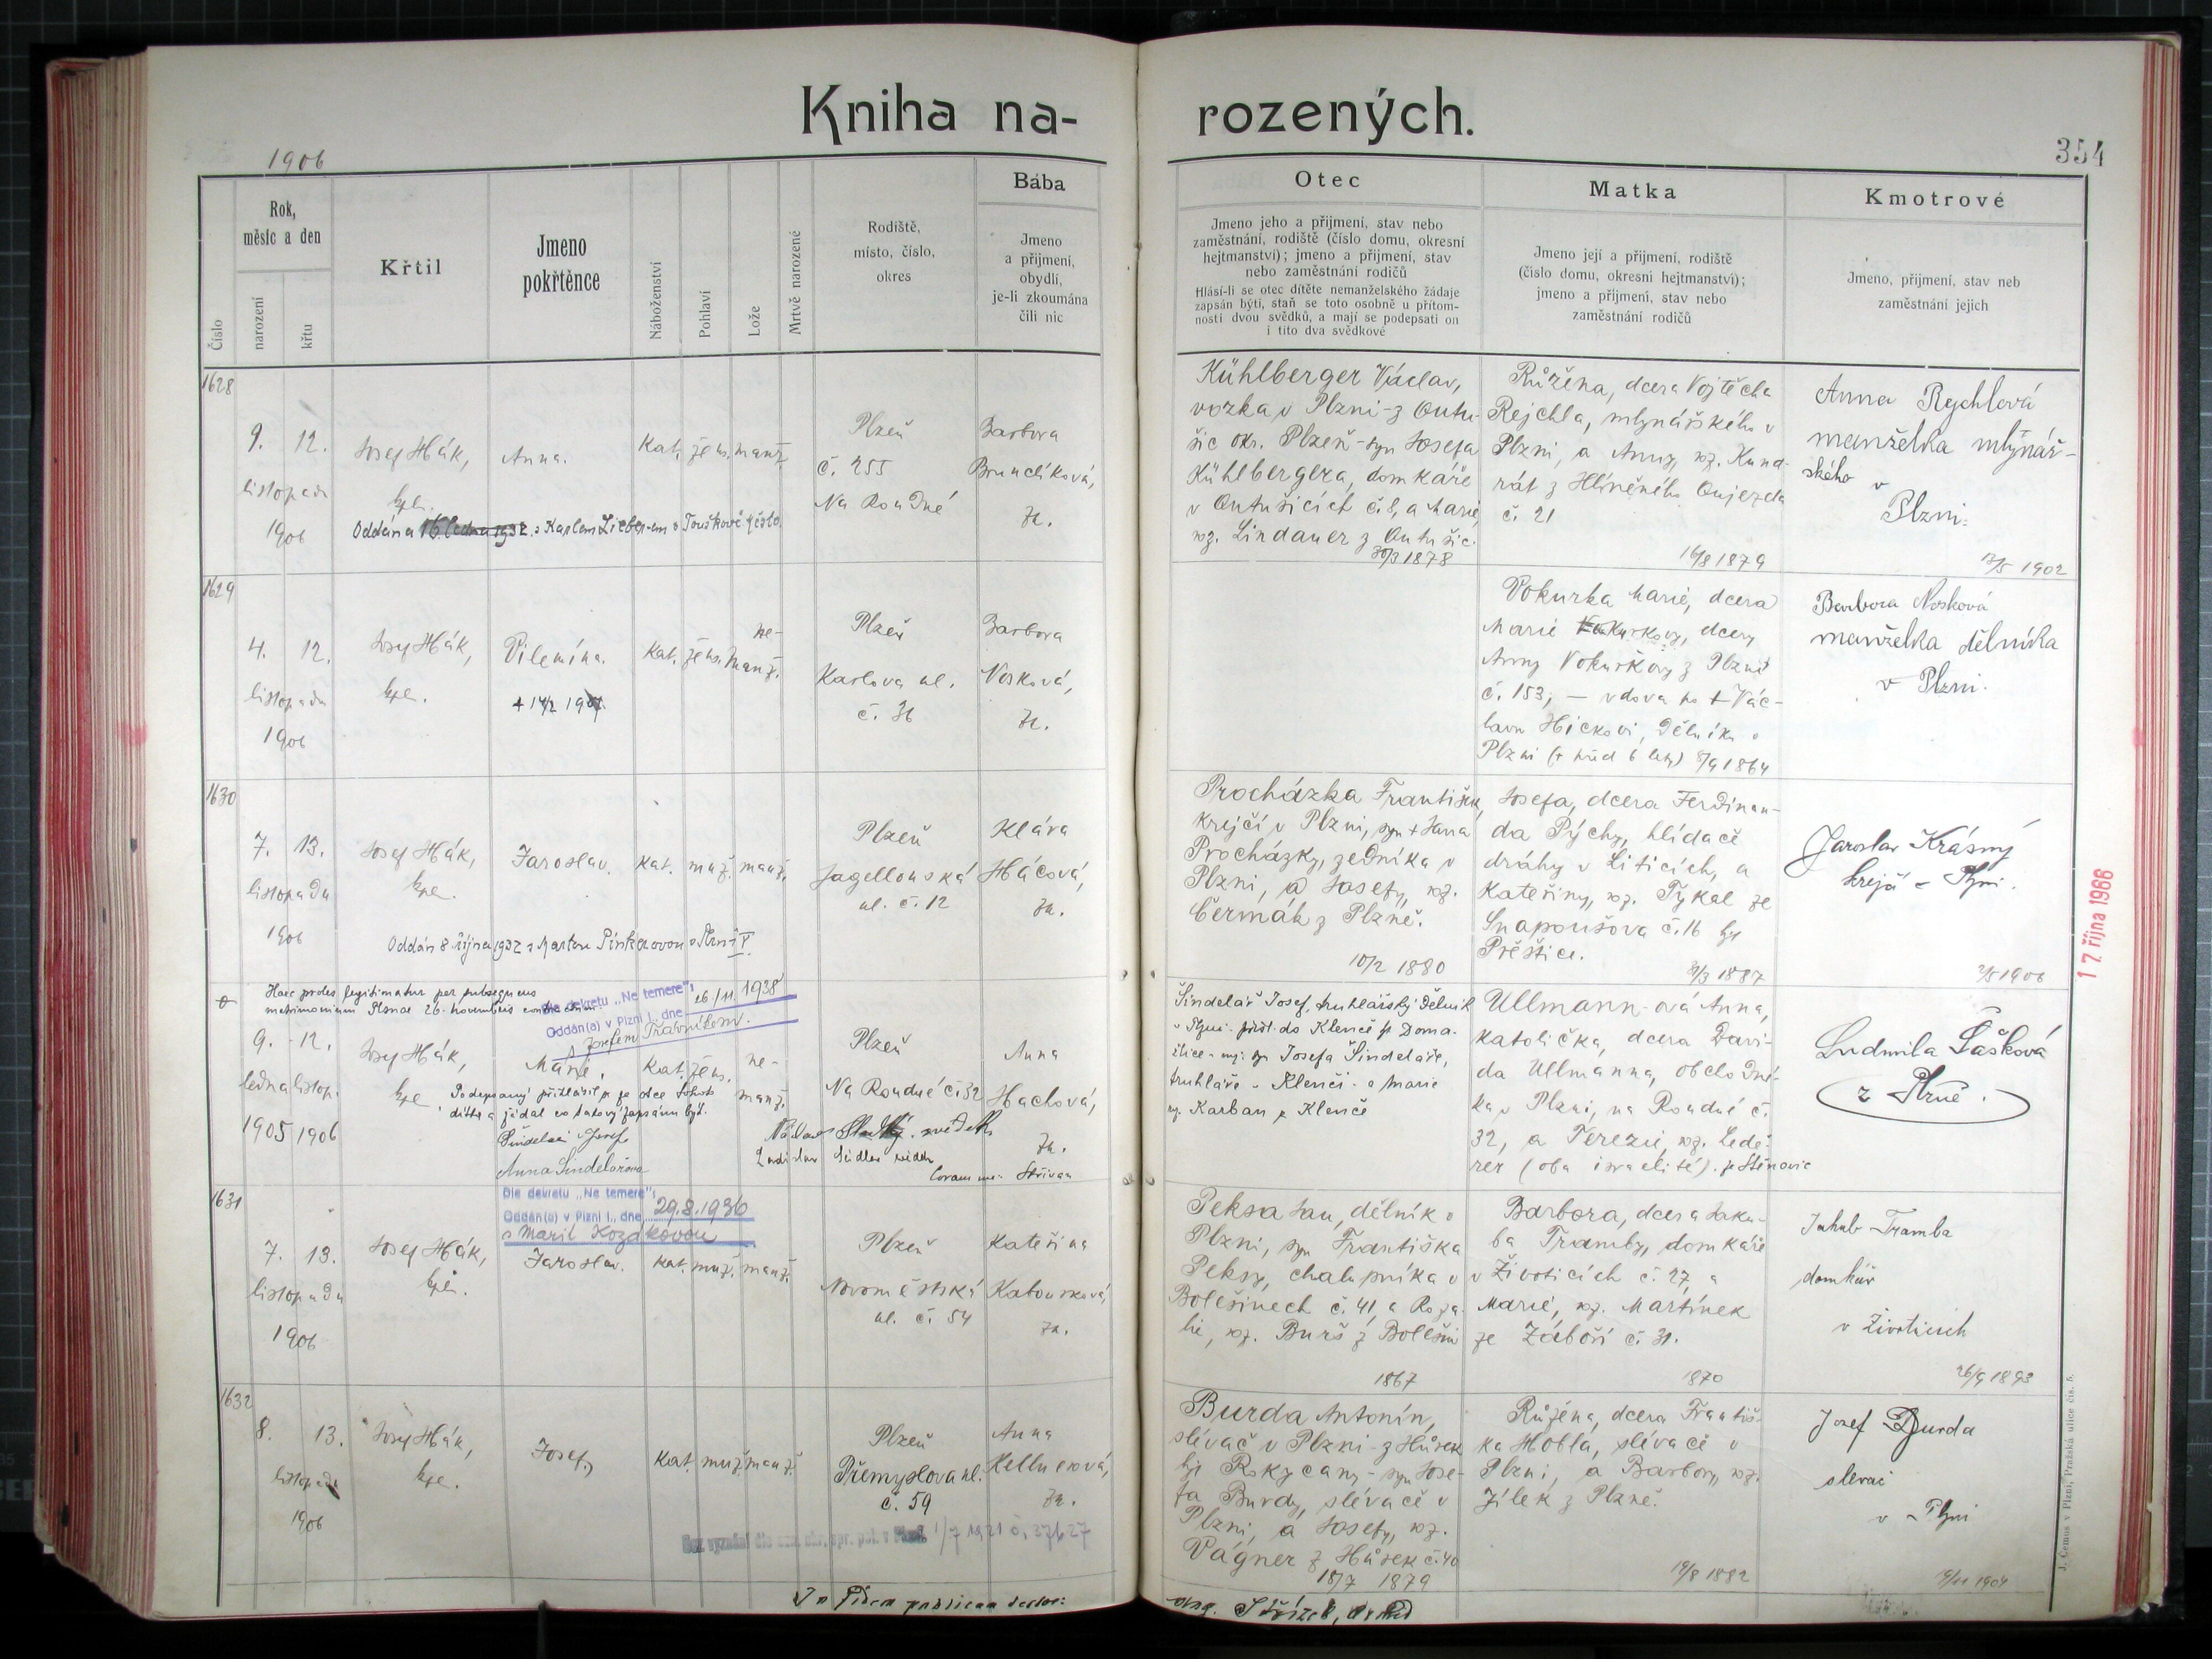 Kniha na-
rozených.
1906
354
Číslo
Rok,
měsíc a den
narození
křtu
Křtil
Jmeno
pokřtěnce
Náboženství
Pohlaví
Lože
Mrtvě narozené
Rodiště,
místo, číslo,
okres
Bába
Jmeno
a přijmení,
obydlí,
je-li zkoumána
čili nic
Otec
Jmeno jeho a přijmení, stav nebo
zaměstnání, rodiště (číslo domu, okresní
hejtmanství); jmeno a přijmení, stav
nebo zaměstnání rodičů
Hlásí-li se otec dítěte nemanželského žádaje
zapsán býti, staň se toto osobně u přítom-
nosti dvou svědků, a mají se podepsati on
i tito dva svědkové
Matka
Jmeno její a přijmení, rodiště
(číslo domu, okresní hejtmanství);
jmeno a přijmení, stav nebo
zaměstnání rodičů
Kmotrové
Jmeno, přijmení, stav neb
zaměstnání jejich
1628
9. 12.
listopadu
1906
Josef Hák,
kpl.
Anna.
Kat. žens. manž.
Plzeň
č. 255
Na Roudné
Barbora
Brunclíková,
zk.
Oddána 16. ledna 1932 s Karlem v Touškově město.
Kühlberger Václav,
vozka v Plzni - z Outu-
šic okr. Plzeň - syn Josefa
Kühlbergera, domkáře
v Outušicích č. 8, a Marie,
roz. Lindauer z Outušic.
30/3 1878
Růžena, dcera Vojtěcha
Rejchla, mlynářského v
Plzni, a Anny, roz. Kund-
rát z Hlíněného Oujezda
č. 21
16/8 1879
Anna Rychlová
manželka mlynář-
ského v
Plzni.
13/5 1902
1629
4. 12.
listopadu
1906
Josef Hák,
kpl.
Vilemína.
+ 14/2 1907
Kat. žens. ne-
manž.
Plzeň
Karlova ul.
č. 36
Barbora
Nosková,
zk.
Vokurka Marie, dcera
Marie Vokurkovy, dcery
Anny Vokurkovy z Plzně
č. 153, — vdova po + Vác-
lavu Hickovi, dělníku v
Plzni (+ před 6 lety) 8/9 1864
Barbora Nosková
manželka dělníka
v Plzni.
1630
7. 13.
listopadu
1906
Josef Hák,
kpl.
Jaroslav.
Kat. muž. manž.
Plzeň
Jagellonská
ul. č. 12
Klára
Hácová,
zk.
Oddán 8. října 1932 s Martou v Plzni V.
Procházka František,
krejčí v Plzni, syn + Jana
Procházky, zedníka v
Plzni, a Josefy, roz.
Čermák z Plzně.
10/2 1880
Josefa, dcera Ferdinan-
da Pýchy, hlídače
dráhy v Liticích, a
Kateřiny, roz. Tykal ze
Snapoušova č. 16 hj.
Přeštice.
8/3 1887
Jaroslav Krásný
krejčí v Plzni.
2/5 1906
17. října 1966
Haec proles legitimatur per subsequens
matrimonium Plsnae 26. novembris
Dle dekretu „Ne temere":
Oddán(a) v Plzni I., dne 26/11. 1938
s Josefem Trávníkem.
9. 12.
ledna listop.
1905 1906
Josef Hák,
kpl.
Marie.
Kat. žens. ne-
manž.
Plzeň
Na Roudné č. 32
Anna
Hachová,
zk.
Podepsaný přihlásil se za otce tohoto
dítěte a žádal co takový zapsán být.
Šindelář Josef
Anna Šindelářová
svědek
Ladislav svědek
Coram me: Střívan
Šindelář Josef, truhlářský dělník
v Plzni - přísl. do Klenčí p. Doma-
žlice - mj. syn Josefa Šindeláře,
truhláře v Klenčí - a Marie
roz. Karban z Klenčí
Ullmann-ová Anna,
katolička, dcera Davi-
da Ullmanna, obchodní-
ka v Plzni, na Roudné č.
32, a Terezie, roz. Lede-
rer (oba israelité). ze Stěnovic
Ludmila Šašková
z Plzně.
1631
Dle dekretu „Ne temere":
Oddán(a) v Plzni I., dne 29.8.1936
s Marií Kozákovou
7. 13.
listopadu
1906
Josef Hák,
kpl.
Jaroslav.
Kat. muž. manž.
Plzeň
Novoměstská
ul. č. 54
Kateřina
Kabourková,
zk.
Peksa Jan, dělník v
Plzni, syn Františka
Peksy, chalupníka v
Bolešinech č. 41, a Roza-
lie, roz. Burš z Bolešin
1867
Barbora, dcera Jaku-
ba Tramby, domkáře
v Životicích č. 27, a
Marie, roz. Martínek
ze Záboří č. 31.
1870
Jakub Tramba
domkář
v Životicích
26/9 1893
1632
8. 13.
listopadu
1906
Josef Hák,
kpl.
Josef,
Kat. muž. manž.
Plzeň
Přemyslova ul.
č. 59
Anna
Hellnerová,
zk.
1/7 1921 č. 37627
Burda Antonín,
slévač v Plzni - z Hůrek
hj. Rokycany - syn Jose-
fa Burdy, slévače v
Plzni, a Josefy, roz.
Vágner z Hůrek č. 40
18/7 1879
Růžena, dcera Františ-
ka Hobla, slévače v
Plzni, a Barbory, roz.
Jílek z Plzně.
19/8 1882
Josef Burda
slevač
v Plzni
19/11 1904
In fidem publicam
J. Čemus v Plzni, Pražská ulice čís. 5.